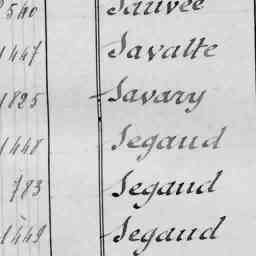 540 Sauvée
1447 Savatte
1825 Savary
1448 Segaud
783 Segaud
1449 Segaud